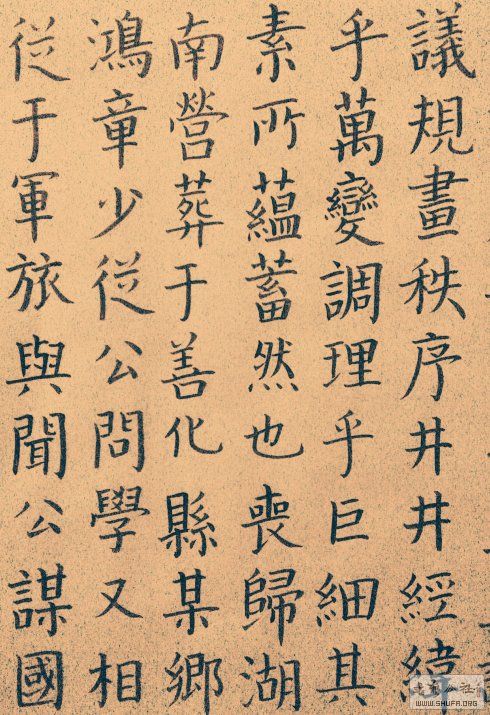 議規畫秩序井井經緯
乎萬變調理乎巨細其
素所蘊蓄然也喪歸湖
南營葬于善化縣某鄉
鴻章少從公問學又相
從于軍旅與聞公謀國
WWW.SHUFA.ORG